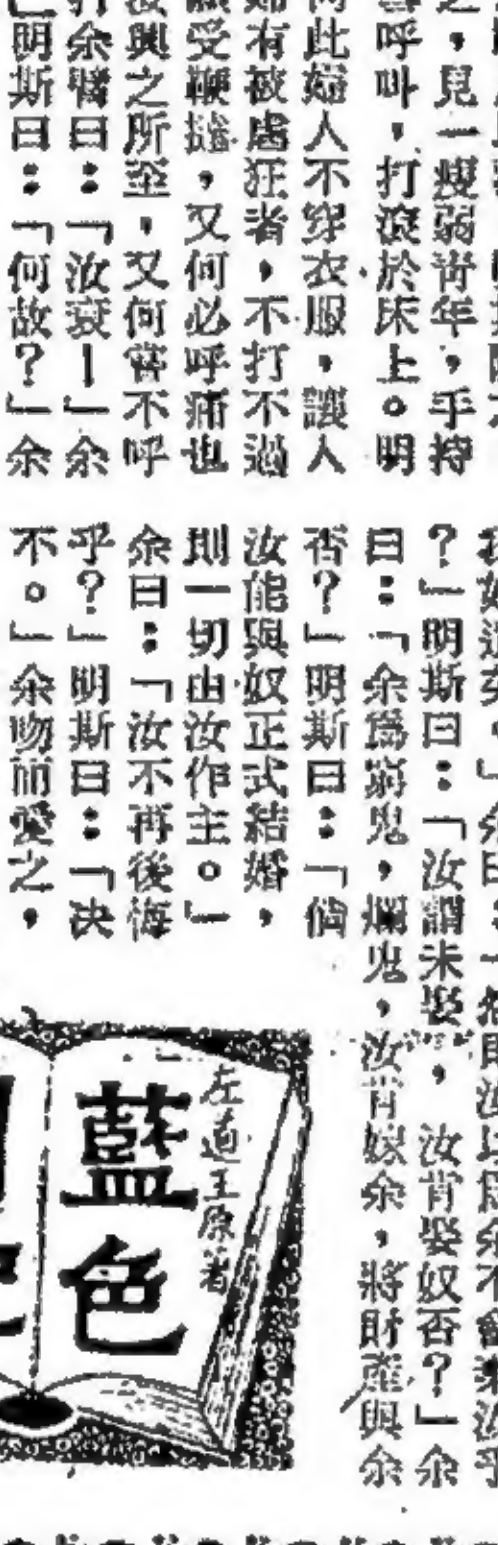 ，見一瘦弱青年，手持
呼叫，打滾於床上。明
此婦人不穿衣服，讓人
有被虐狂者，不打不過
受鞭撻，又何必呼痛也
興之所至，又何嘗不呼
余臂曰：「汝衰！」余
明斯曰：「何故？」余
？」明斯曰：「汝謂未娶，汝肯娶奴否？」余
曰：「余爲窮鬼，爛鬼，汝肯嫁余，將財產與余
否？」明斯曰：「倘
汝能與奴正式結婚，
則一切由汝作主。」
余曰：「汝不再後悔
乎？」明斯曰：「决
不。」余吻而愛之，
左道王原著
藍色